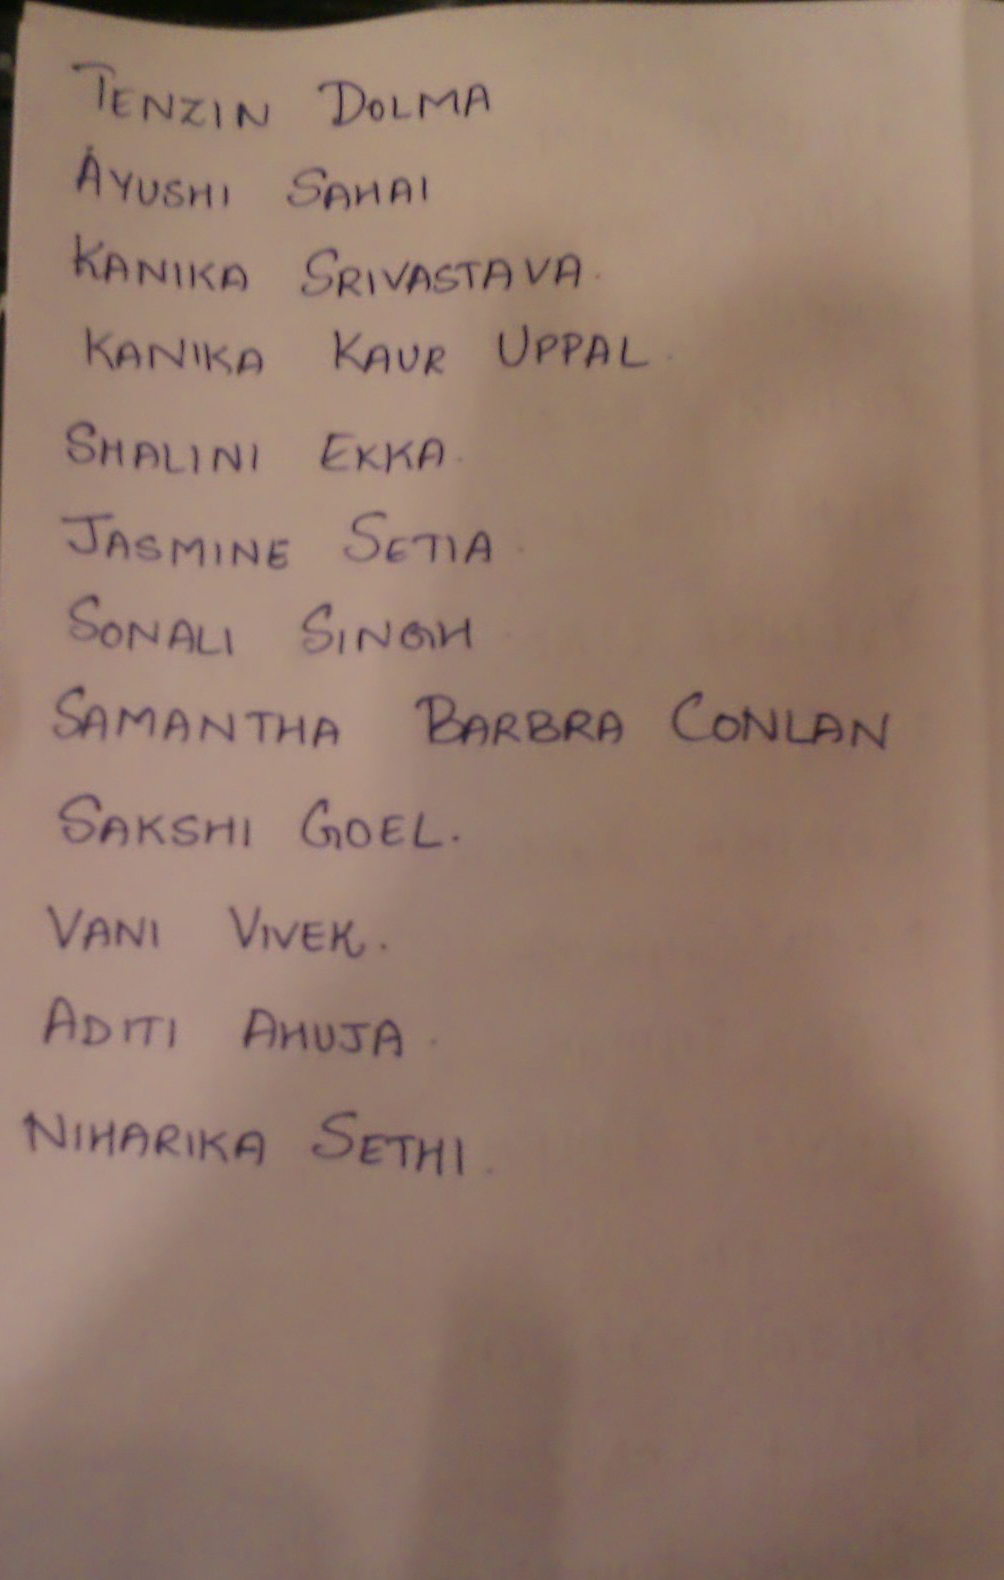 TENZIN DOLMA
AYUSHI SAHAI
KANIKA SRIVASTAVA.
KANIKA KAUR UPPAL.
SHALINI EKKA.
JASMINE SETIA.
SONALI SINGH.
SAMANTHA BARBRA CONLAN
SAKSHI GOEL.
VANI VIVEK.
ADITI AHUJA.
NIHARIKA SETHI.